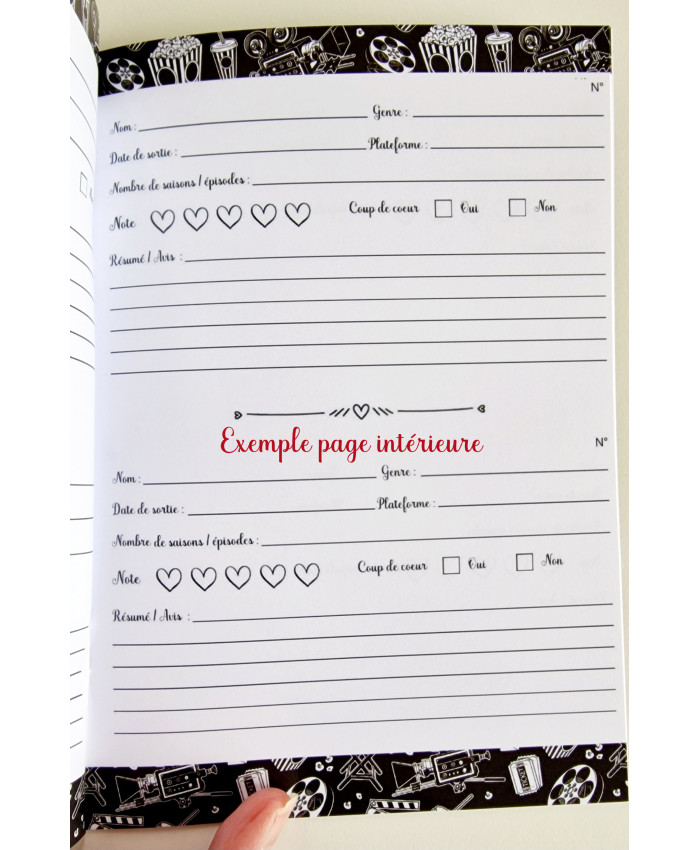 N°
Nom : Genre :
Date de sortie : Plateforme :
Nombre de saisons / épisodes :
Note Coup de coeur Oui Non
Résumé / Avis :
Exemple page intérieure
N°
Nom : Genre :
Date de sortie : Plateforme :
Nombre de saisons / épisodes :
Note Coup de coeur Oui Non
Résumé / Avis :